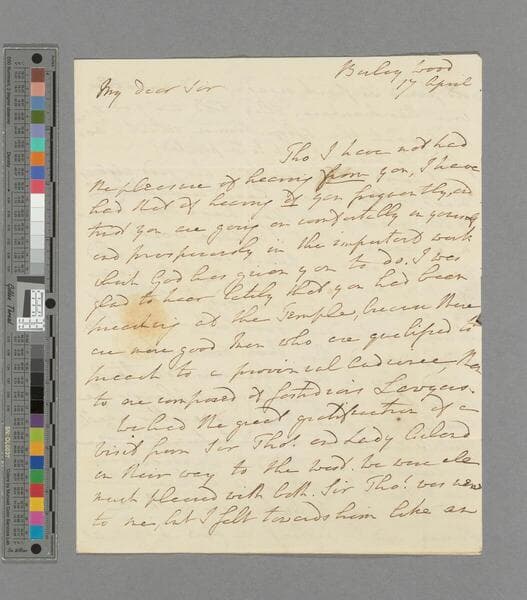 Barley Wood
17 April
My dear Sir
Tho I have not had
the pleasure of hearing from you, I have
had that of hearing of you frequently, and
trust you are going on comfortably in yourself
and prosperously in the important work
which God has given you to do. I was
glad to hear lately that you had been
preaching at the Temple, because there
are more good men who are qualified to
preach to a provincial audience, than
to one composed of fastidious Lawyers.
We had the great gratification of a
visit from Sir Thos. and Lady Acland
on their way to the West. We were all
much pleased with both. Sir Thos. was new
to me, but I felt towards him like an